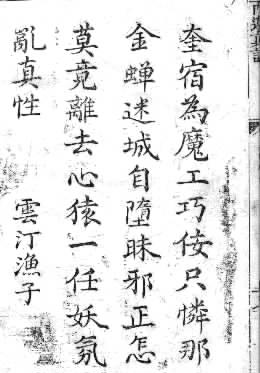 奎宿為魔工巧佞只憐那
金蝉迷城自墮昧邪正怎
莫竟離去心猿一任妖氛
亂真性　雲汀漁子